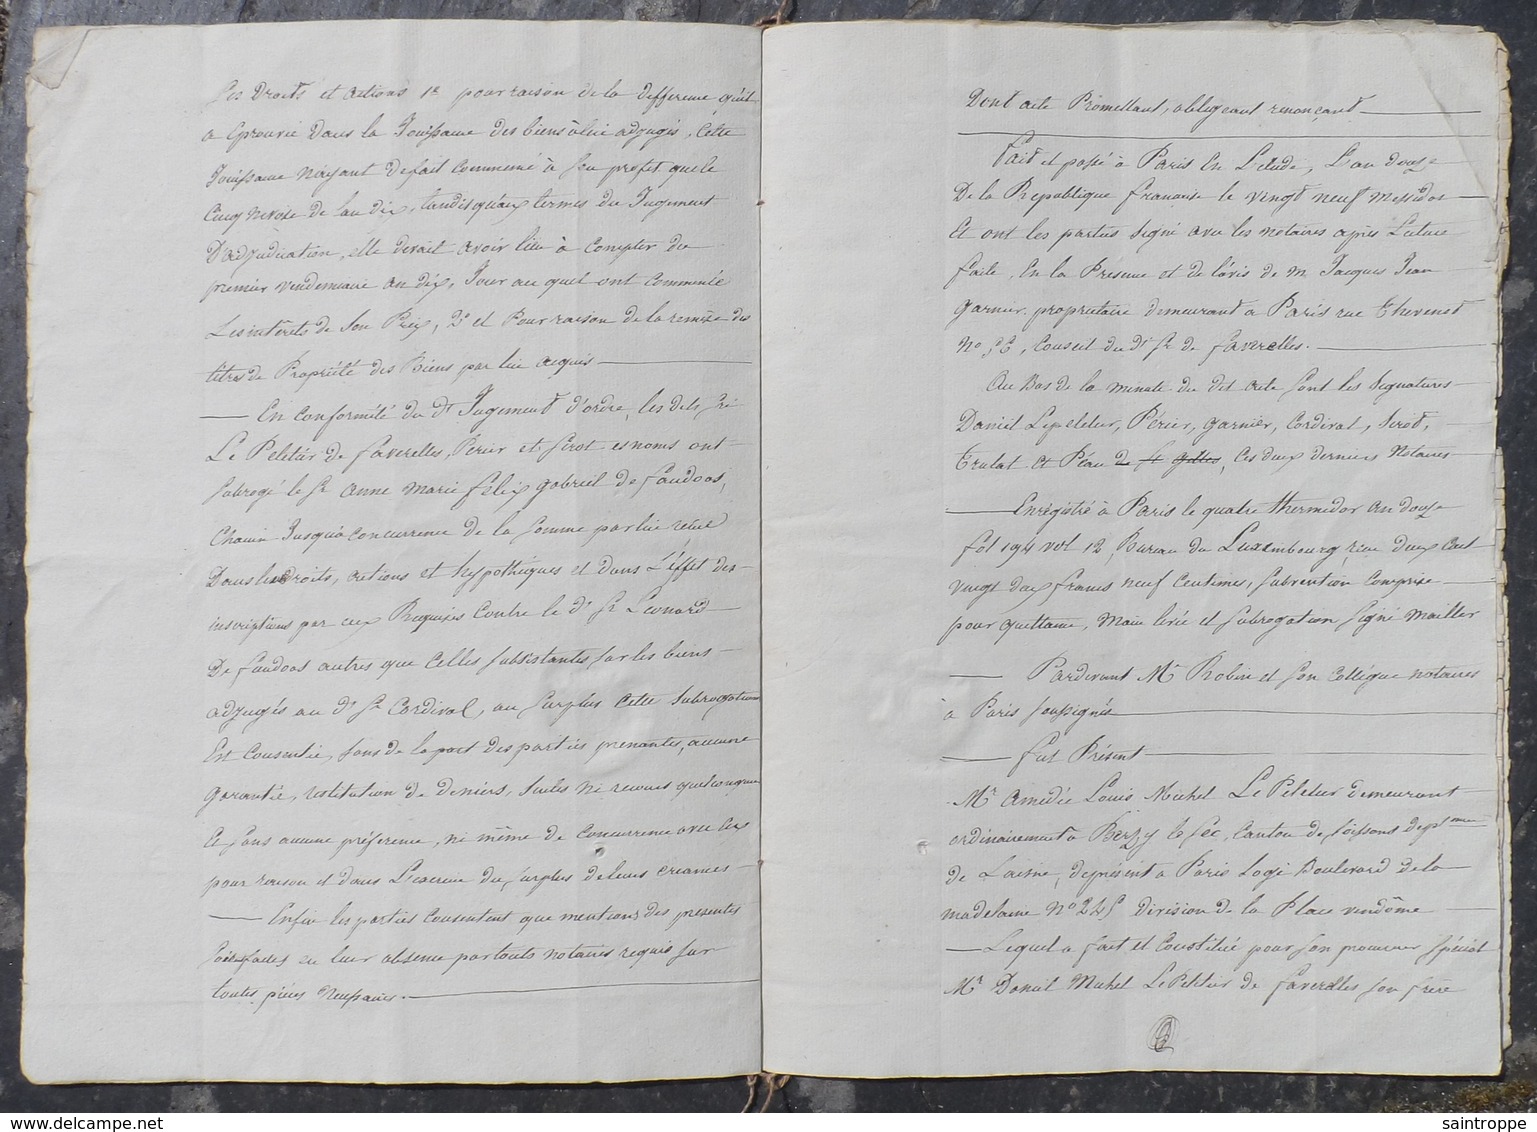 Les Droits et actions 1º pour raison de la differeme qu'il
a Eprouvé dans la Jouissance des biens à lui adjugés, Cette
Jouissance n'ayant de fait commencé à son profit que le
Cinq Nivose de l'an dix, tandis qu'aux termes du Jugement
D'adjudication, elle devait avoir lieu à Compter du
premier vendemiaire an dix, Jour au quel ont Commencé
Les intérêts de son Prix, 2º et Pour raison de la remise des
titres de Propriété des Biens par lui acquis
En Conformité du dt Jugement d'ordre, les dits Srs
Le Peletier de faverelles, Périer et Serot es noms ont
subrogé le Sr Anne Marie félix gabriel de faudoas,
Chacun Jusqu'à Concurrence de la somme par lui reçue
Dans les droits, actions et hypothèques et dans L'éffet des
inscriptions par eux Requises Contre le dt Sr Léonard
De faudoas autres que Celles subsistantes sur les biens
adjugés au dt Sr Cordival, au surplus Cette subrogation
Est Consentie, sans de la part des parties prenantes, aucune
garantie, restitution de deniers, suites ni recours quelconque
Et sans aucune préference, ni même de Concurrence avec eux
pour raison et dans L'exercice du surplus de leurs créances
Enfin les parties Consentent que mentions des présentes
soit faites en leur absence par touts notaires requis sur
toutes pièces Necessaires.
Dont acte Promettant, obligeant renonçant
fait et passé à Paris En L'etude, L'an douze
De la République française le vingt neuf Messidor
Et ont les parties signé avec les notaires après Lecture
faite, En la Presence et de l'avis de M. Jacques Jean
garnier, propriétaire demeurant a Paris rue Thevenot
Nº 56, Conseil du dt Sr de faverelles.
Au Bas de la minute du dit acte sont les signatures
Daniel Lepeletier, Périer, garnier, Cordival, Serot,
Trulat et Péan de St Gilles, Ces deux derniers Notaires
Enregistré à Paris le quatre thermidor an douze
fol 194 vol 12, Bureau du Luxembourg, reçu deux Cent
vingt deux francs neuf Centimes, subvention Comprise
pour quittance, Main levée et subrogation signé Mailler
Pardevant Mr Robin et son Collégue notaires
à Paris soussignés
fut Présent
Mr Amédée Louis Michel Le Peletier demeurant
ordinairement à Berzy le sec, Canton de soissons depart men
de L'aisne, de présent a Paris Logé Boulevard de la
madelaine Nº 245 Division de la Place vendôme
Lequel a fait et Constitué pour son procureur spécial
Mr Daniel Michel Le Peletier de faverelles son frere
saintroppe